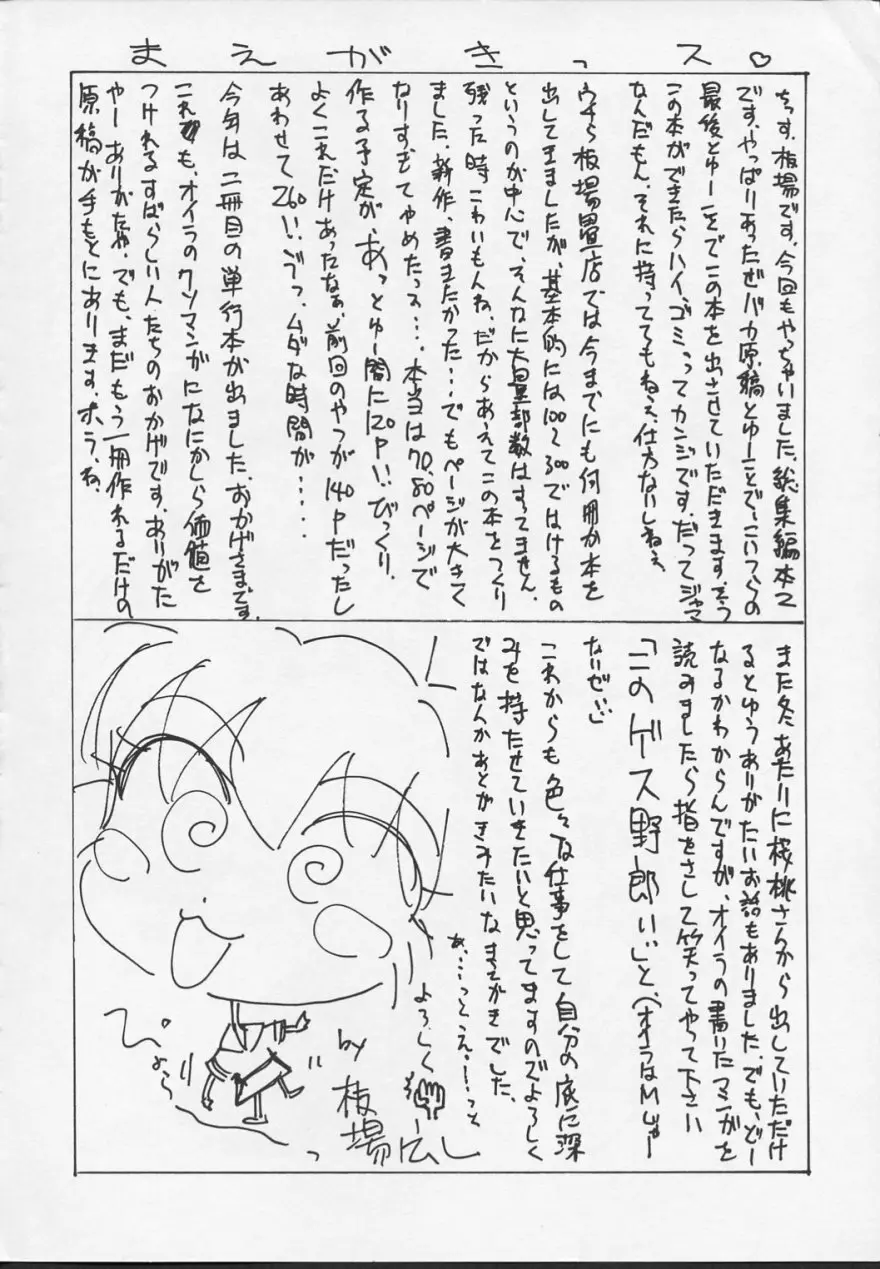 まえがきっス♡
ちっす、板場です。今回もやっちゃいました、総集編本て
です、やっぱりあったぜバカ原稿とゆーことで、こいつらの
最後とゆーことでこの本を出させていただきます。そう
この本ができたらハイ、ゴミってカンジです。だってジャマ
なんだもん、それに持っててもねぇ、仕方ないしねぇ
うちら板場畳店では今までにも何冊か本を
出してきましたが、基本的には100〜300ではけるもの
というのが中心で、そんなに大量部数はすってません。
残った時こわいもんね、だからあえてこの本をつくり
ました、新作、書きたかった…でもページが大きて
なりすぎてやめたっス…、本当は70,80ページで
作る予定が、あっとゆー間に120P!!びっくり、
よくこれだけあったなぁ、前回のやつが140Pだったし
あわせて260!!、ムダな時間が…‥
今年は二冊目の単行本が出ました、おかげさまです、
これも、オイラのクソマンガになにかしら価値を
つけれるすばらしい人たちのおかげです、ありがた
やーありがたや、でも、まだもう一冊作れるだけの
原稿が手もとにあります、ホラ、ね、
また冬あたりに桜桃さんから出していただけ
るとゆうありがたいお話もありました、でも、どー
なるかわからんですが、オイラの書いたマンガを
読みましたら指をさして笑ってやって下さい
「このゲス野郎!!」と、(オイラはMじゃー
ないぜ!!)
これからも色々な仕事をして自分の底に深
みを持たせていきたいと思ってますのでよろしく
ではなんかあとがきみたいなまえがきでした、
あ…っとえ…っと
よろしく
by 板場広し